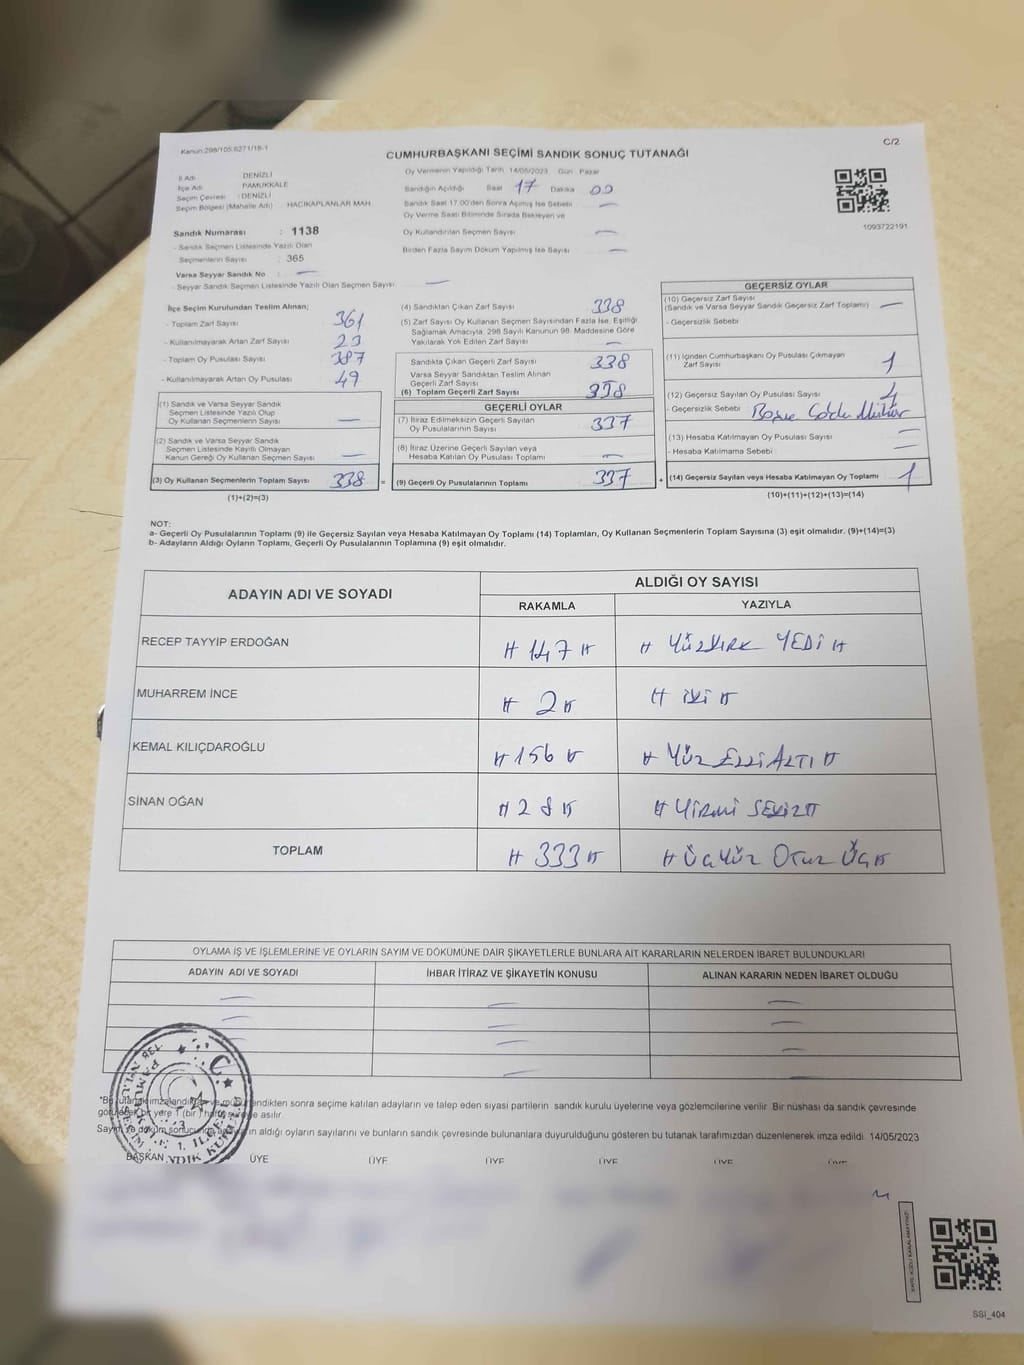 Kanun:298/105,6271/18-1
C/2
CUMHURBAŞKANI SEÇİMİ SANDIK SONUÇ TUTANAĞI
İl Adı DENİZLİ
İlçe Adı PAMUKKALE
Seçim Çevresi : DENİZLİ
Seçim Bölgesi (Mahalle Adı) : HACIKAPLANLAR MAH.
Sandık Numarası : 1138
- Sandık Seçmen Listesinde Yazılı Olan
Seçmenlerin Sayısı : 365
Varsa Seyyar Sandık No :
- Seyyar Sandık Seçmen Listesinde Yazılı Olan Seçmen Sayısı
Oy Vermenin Yapıldığı Tarih 14/05/2023 Gün Pazar
Sandığın Açıldığı Saat 17 Dakika 00
Sandık Saat 17:00'den Sonra Açılmış İse Sebebi
Oy Verme Saati Bitiminde Sırada Bekleyen ve
Oy Kullandırılan Seçmen Sayısı
Birden Fazla Sayım Döküm Yapılmış İse Sayısı
1093722191
İlçe Seçim Kurulundan Teslim Alınan;
- Toplam Zarf Sayısı 361
- Kullanılmayarak Artan Zarf Sayısı 23
- Toplam Oy Pusulası Sayısı 387
- Kullanılmayarak Artan Oy Pusulası 49
(1) Sandık ve Varsa Seyyar Sandık
Seçmen Listesinde Yazılı Olup
Oy Kullanan Seçmenlerin Sayısı
(2) Sandık ve Varsa Seyyar Sandık
Seçmen Listesinde Kayıtlı Olmayan
Kanun Gereği Oy Kullanan Seçmen Sayısı
(3) Oy Kullanan Seçmenlerin Toplam Sayısı 338 =
(1)+(2)=(3)
(4) Sandıktan Çıkan Zarf Sayısı 338
(5) Zarf Sayısı Oy Kullanan Seçmen Sayısından Fazla İse, Eşitliği
Sağlamak Amacıyla, 298 Sayılı Kanunun 98. Maddesine Göre
Yakılarak Yok Edilen Zarf Sayısı
Sandıkta Çıkan Geçerli Zarf Sayısı 338
Varsa Seyyar Sandıktan Teslim Alınan
Geçerli Zarf Sayısı
(6) Toplam Geçerli Zarf Sayısı 338
GEÇERLİ OYLAR
(7) İtiraz Edilmeksizin Geçerli Sayılan
Oy Pusulalarının Sayısı 337
(8) İtiraz Üzerine Geçerli Sayılan veya
Hesaba Katılan Oy Pusulası Toplamı
(9) Geçerli Oy Pusulalarının Toplamı 337 +
GEÇERSİZ OYLAR
(10) Geçersiz Zarf Sayısı
(Sandık ve Varsa Seyyar Sandık Geçersiz Zarf Toplamı)
- Geçersizlik Sebebi
(11) İçinden Cumhurbaşkanı Oy Pusulası Çıkmayan
Zarf Sayısı 1
(12) Geçersiz Sayılan Oy Pusulası Sayısı
- Geçersizlik Sebebi
(13) Hesaba Katılmayan Oy Pusulası Sayısı
- Hesaba Katılmama Sebebi
(14) Geçersiz Sayılan veya Hesaba Katılmayan Oy Toplamı 1
(10)+(11)+(12)+(13)=(14)
NOT:
a- Geçerli Oy Pusulalarının Toplamı (9) ile Geçersiz Sayılan veya Hesaba Katılmayan Oy Toplamı (14) Toplamları, Oy Kullanan Seçmenlerin Toplam Sayısına (3) eşit olmalıdır. (9)+(14)=(3)
b- Adayların Aldığı Oyların Toplamı, Geçerli Oy Pusulalarının Toplamına (9) eşit olmalıdır.
ADAYIN ADI VE SOYADI
ALDIĞI OY SAYISI
RAKAMLA YAZIYLA
RECEP TAYYİP ERDOĞAN # 147 # # YÜZKIRK YEDİ #
MUHARREM İNCE # 2 # # İKİ #
KEMAL KILIÇDAROĞLU # 156 # # YÜZ ELLİ ALTI #
SİNAN OĞAN # 28 # # YİRMİ SEKİZ #
TOPLAM # 333 # # ÜÇYÜZ OTUZ ÜÇ #
OYLAMA İŞ VE İŞLEMLERİNE VE OYLARIN SAYIM VE DÖKÜMÜNE DAİR ŞİKAYETLERLE BUNLARA AİT KARARLARIN NELERDEN İBARET BULUNDUKLARI
ADAYIN ADI VE SOYADI İHBAR İTİRAZ VE ŞİKAYETİN KONUSU ALINAN KARARIN NEDEN İBARET OLDUĞU
sonra seçime katılan adayların ve talep eden siyasi partilerin sandık kurulu üyelerine veya gözlemcilerine verilir. Bir nüshası da sandık çevresinde
bir yere 1 (bir) asılır.
aldığı oyların sayılarını ve bunların sandık çevresinde bulunanlara duyurulduğunu gösteren bu tutanak tarafımızdan düzenlenerek imza edildi. 14/05/2023
BAŞKAN ÜYE ÜYE ÜYE ÜYE ÜYE
SSİ_404